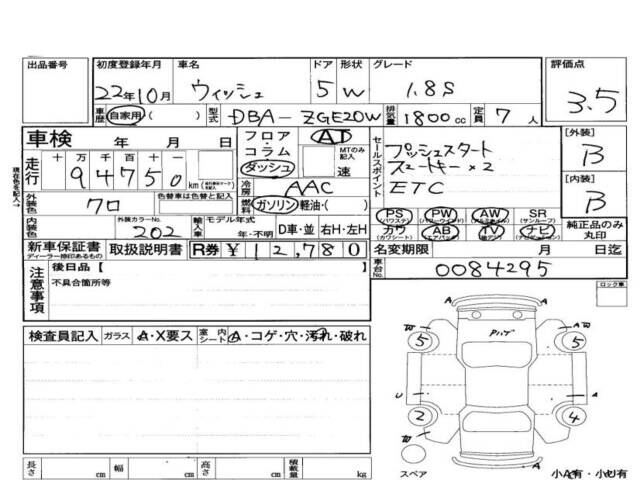 出品番号 初度登録年月 車名 ドア 形状 グレード 評価点
22年10月 ウィッシュ 5 W 1.8S 3.5
車歴 自家用( ) 型式 DBA-ZGE20W 排気量 1800cc 定員 7人
車検 年 月 日 フロア・コラム・ダッシュ AT MTのみ記入 速
セールスポイント プッシュスタート
スマートキー×2
ETC
[外装] B
[内装] B
現在色を記入→
走行 十 万 千 百 十 一
94750 km
冷房 AAC
外装色 クロ 色替車は色替と記入 燃料 ガソリン・軽油・( )
PS (パワステ) PW (パワーウインド) AW (アルミホイル) SR (サンルーフ)
カワ (カワシート) AB (エアバッグ) TV ナビ
純正品のみ丸印
内装色 外装カラーNo. 202 輸入車 モデル年式 年・不明 D車・並 右H・左H
新車保証書 ディーラー捺印あるもの 取扱説明書 R券 ¥12,780
名変期限 月 日迄
車台No. 0084295
注意事項 後日品【 】
不具合箇所等
ロック車
検査員記入 ガラス A・X要ス 室内シート A・コゲ・穴・汚れ・破れ
A
W 5 Pハゲ 5 AW
U A
2 4
W
A
スペア 小A有・小U有
長さ cm 幅 cm 高さ cm 積載量 kg